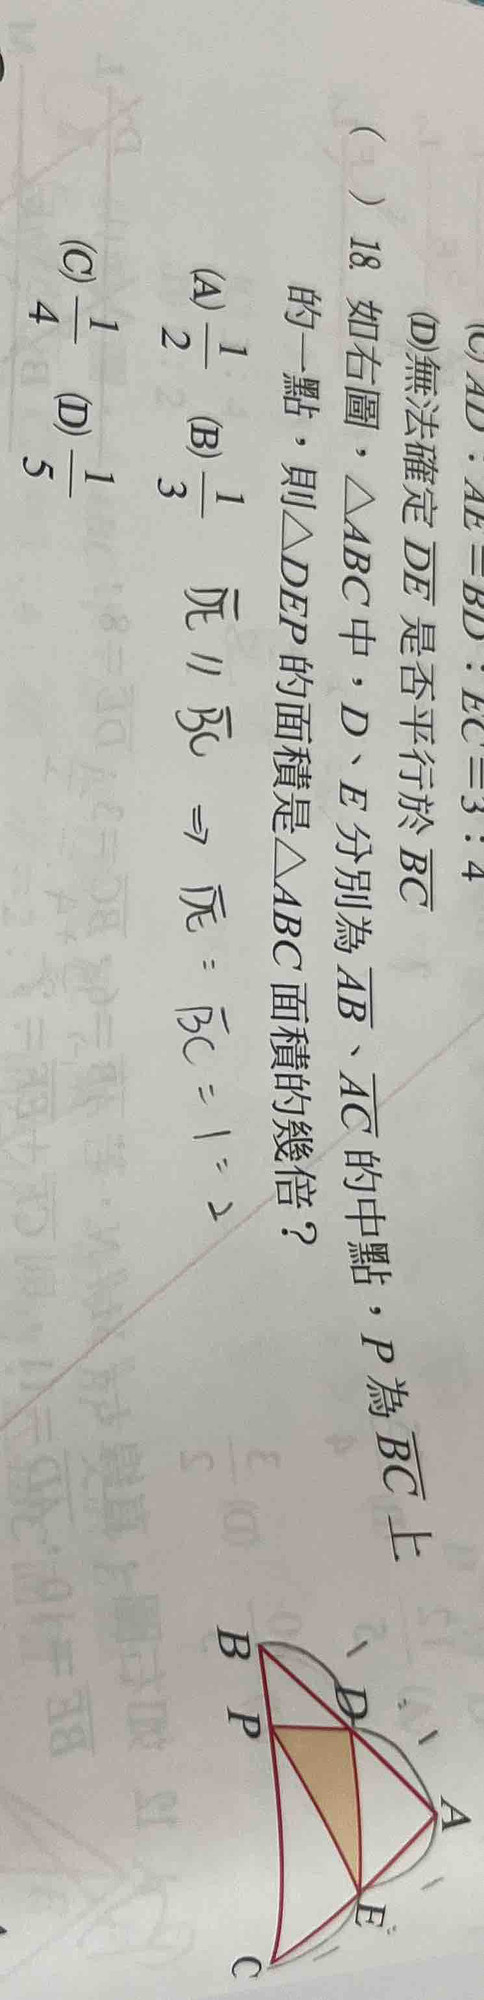 (C) AD：AE＝BD：EC＝3：4
(D)無法確定 DE 是否平行於 BC
(　) 18. 如右圖，△ABC中，D、E分別為 AB、AC 的中點，P為 BC 上
的一點，則△DEP的面積是△ABC面積的幾倍？
(A) 1/2 (B) 1/3
(C) 1/4 (D) 1/5
DE // BC ⇒ DE : BC = 1 : 2
A
D
E
B
P
C